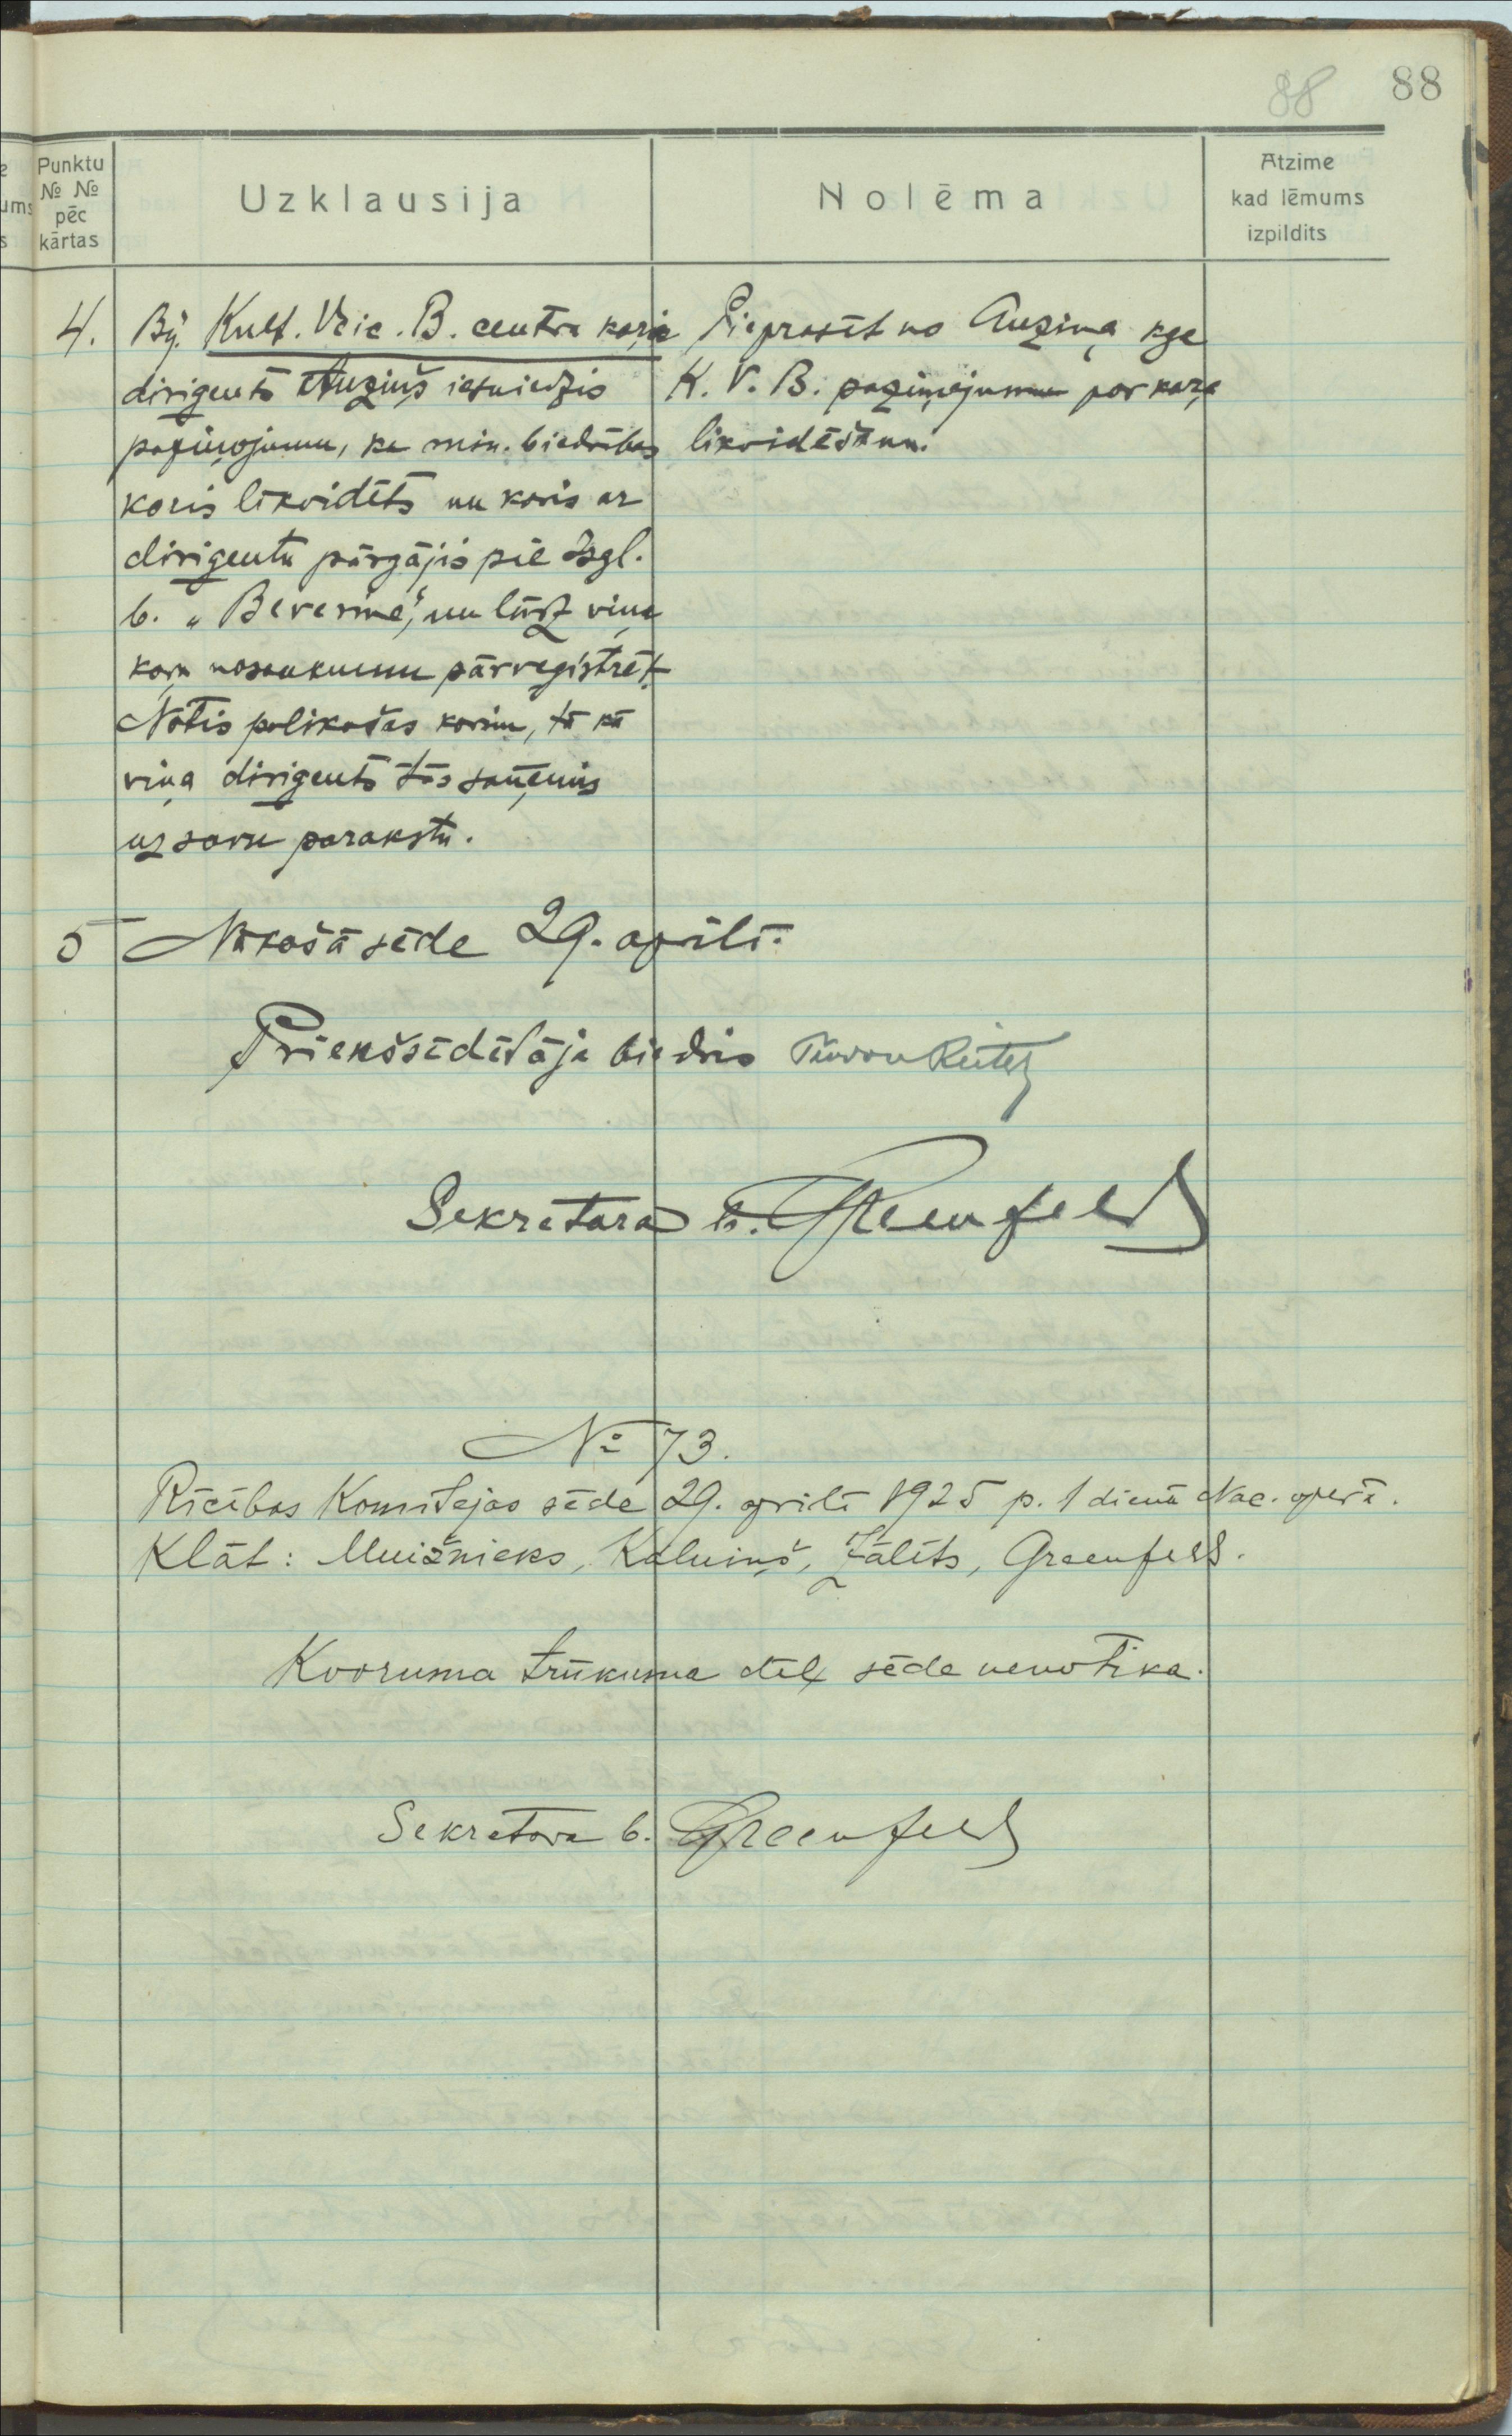 88 88
Punktu
№ №
pēc
kārtas
Uzklausija
Nolēma
Atzime
kad lēmums
izpildits
4.
Bij. Kult. Veic. B. centra koŗa
dirigents Auziņš iesniedzis
paziņojumu, ka min. biedrības
koris likvidēts un koris ar
dirigentu pārgājis pie Izgl.
b. „Beverine", un lūdz viņa
koŗa nosaukumu pārreģistrēt.
Notis palikošas korim, tā kā
viņa dirigents tās saņēmis
uz savu parakstu.
Pieprasīt no Auziņa kga
K. V. B. paziņojumu par koŗa
likvidēšanu.
5 Nākošā sēde 29. aprīlī.
Priekšsēdētāja biedris Reiter
Sekretara b. Greenfeld
№ 73.
Rīcības Komitejas sēde 29. aprīlī 1925 p. 1 dienā Nac. operā.
Klāt: Muižnieks, Kalniņš, Zālīts, Greenfeld.
Kvoruma trūkuma dēļ sēde nenotika.
Sekretara b. Greenfeld